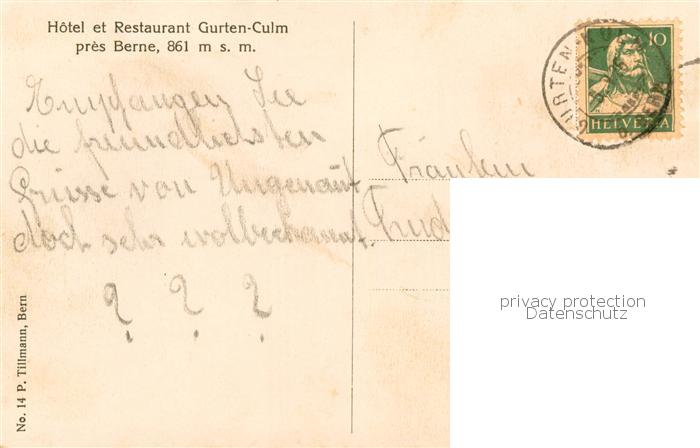 Hôtel et Restaurant Gurten-Culm
près Berne, 861 m s. m.
Empfangen Sie
die freundlichsten
Grüsse von Ungenannt
doch sehr wolbekannt.
? ? ?
Fräulein
Trud
10
HELVETIA
GURTEN-KULM
No. 14 P. Tillmann, Bern
privacy protection
Datenschutz